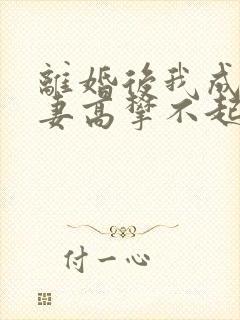 離婚後我成
妻高攀不起
付一心